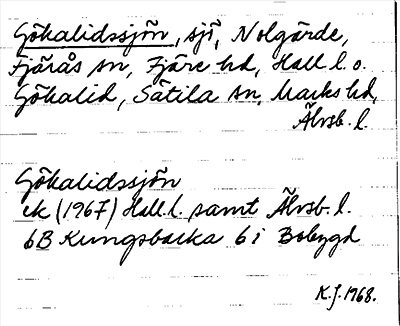 Gökalidssjön, sjö, Nolgärde,
Fjärås sn, Fjäre hd, Hall. l. o.
Gökalid, Sätila sn, Marks hd,
Älvsb. l.
Gökalidssjön
ek (1967) Hall. l. samt Älvsb. l.
6B Kungsbacka 6 i Bobygd
K.J. 1968.